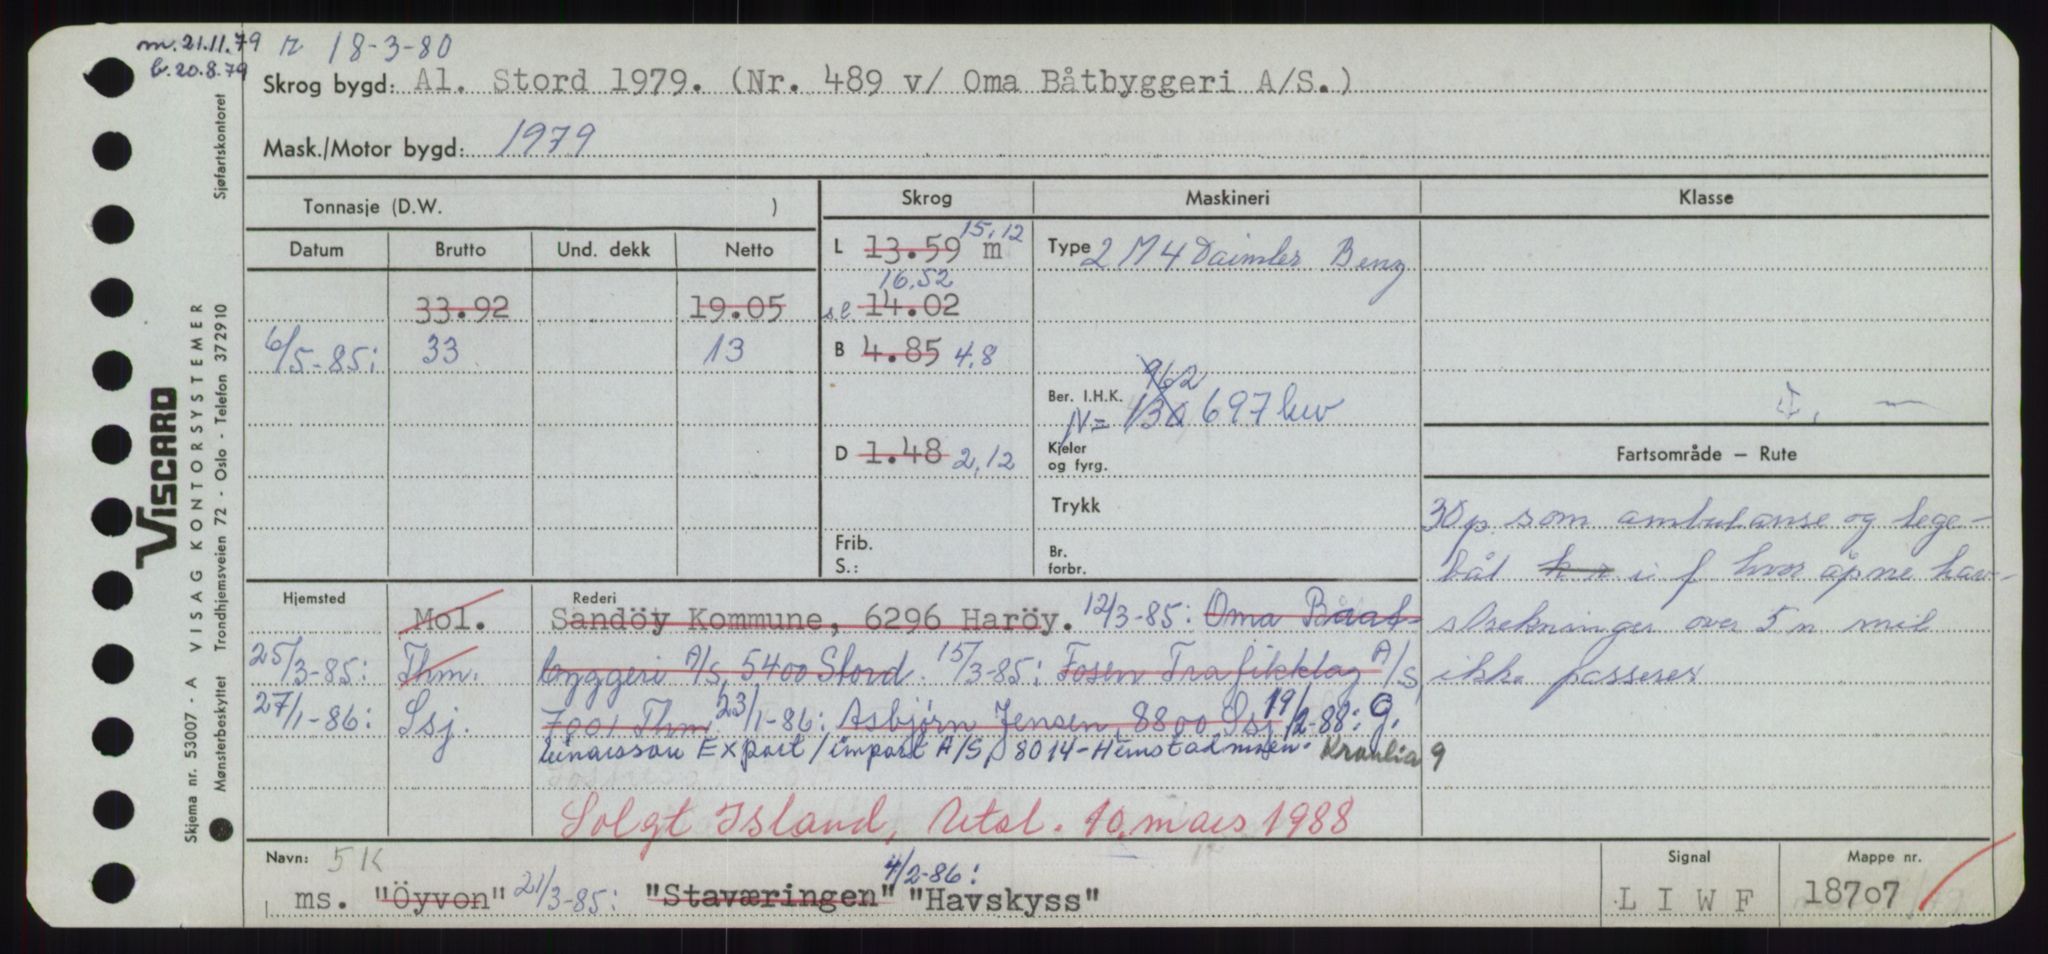 m. 21.11.79 r 18-3-80
b. 20.8.79
Skrog bygd: Al. Stord 1979. (Nr. 489 v/ Oma Båtbyggeri A/S.)
Mask./Motor bygd: 1979
Tonnasje (D.W. )
Skrog
Maskineri
Klasse
Datum Brutto Und. dekk Netto
L 13.59 m 15,12
Type 2 M 4 Daimler Benz
33.92 19.05
sl 14.02 16.52
6/5-85: 33 13
B 4.85 4,8
962
Ber. I.H.K.
N= 130 697 kw
D 1.48 2,12
Kjeler og fyrg.
Fartsområde – Rute
Trykk
Frib.
S.:
Br. forbr.
30 p. som ambulanse og lege-
båt i f hvor åpne hav-
strekninger over 5 n mil
ikke passeres
Hjemsted Mol.
Rederi Sandöy Kommune, 6296 Haröy. 12/3-85: Oma Baat
25/3-85: Thm. byggeri A/S, 5400 Stord. 15/3-85: Fosen Trafikklag A/S,
27/1-86: Ssj. 7001 Thm 23/1-86: Asbjørn Jensen, 8800 Ssj 19/2-88: G.
Einarsson Export/import A/S, 8014-Hunstadmoen. Kronlia 9
Solgt Island, Utsl. 10. mars 1988
Navn: 5K
ms. "Öyvon" 21/3-85: "Staværingen" 4/2-86: "Havskyss"
Signal
L I W F
Mappe nr.
18707
VISCARD
Skjema nr. 53007 - A VISAG KONTORSYSTEMER Sjøfartskontoret
Mønsterbeskyttet Trondhjemsveien 72 - Oslo - Telefon 372910